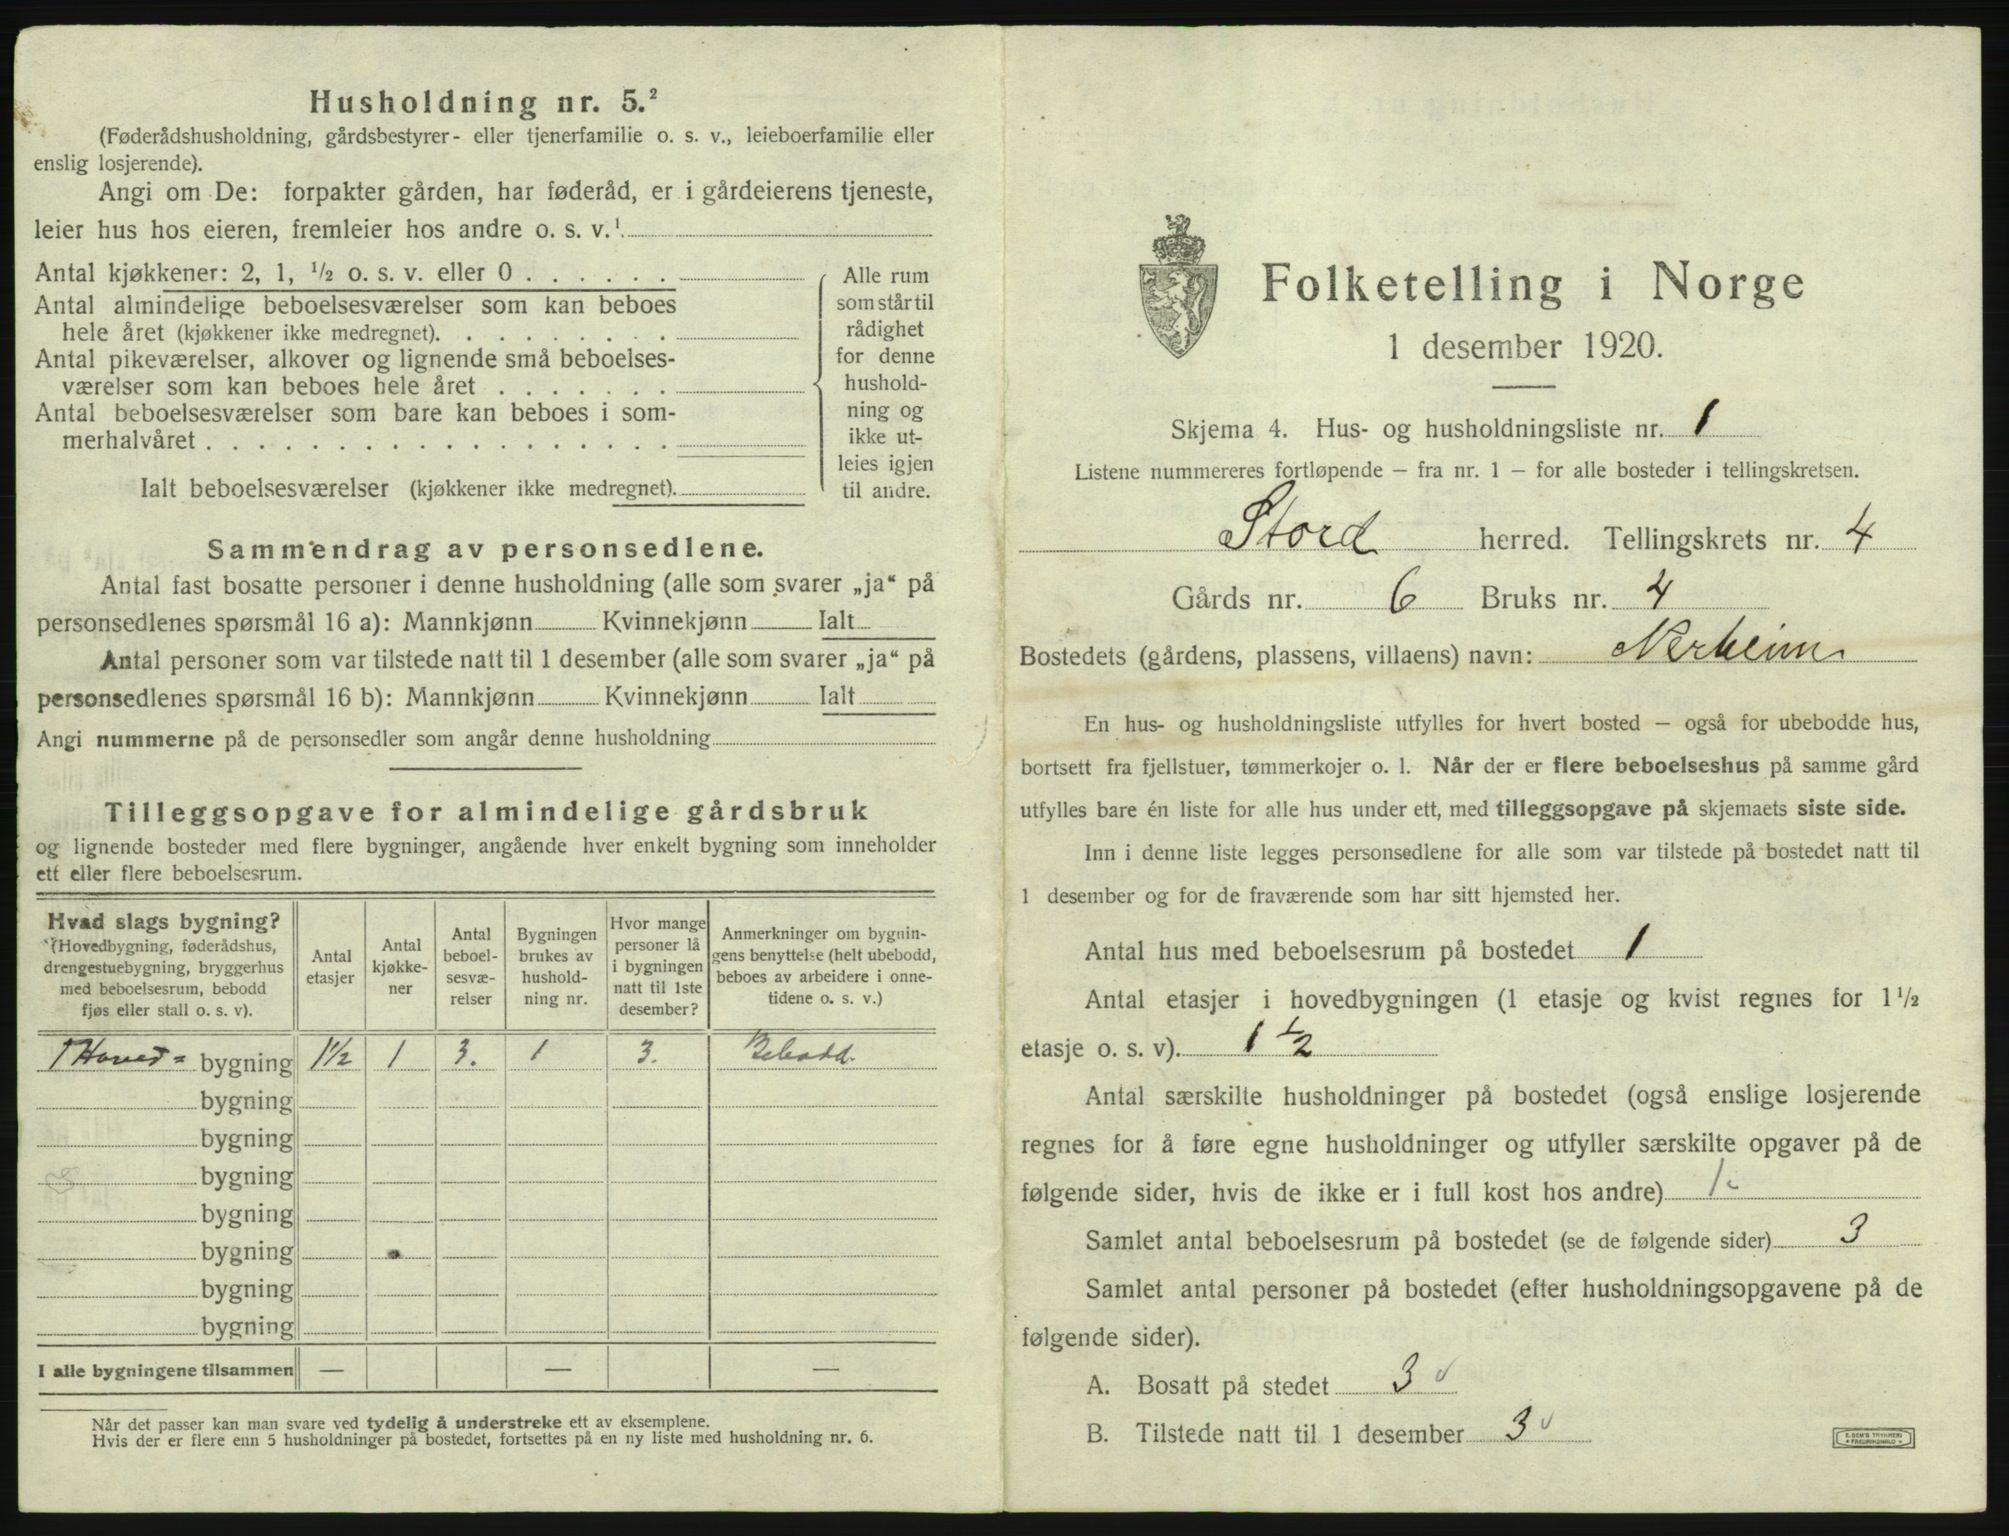 Husholdning nr. 5.²
(Føderådshusholdning, gårdsbestyrer- eller tjenerfamilie o. s. v., leieboerfamilie eller
enslig losjerende).
Angi om De: forpakter gården, har føderåd, er i gårdeierens tjeneste,
leier hus hos eieren, fremleier hos andre o. s. v.¹
Antal kjøkkener: 2, 1, ½ o. s. v. eller 0 . . . . . .
Antal almindelige beboelsesværelser som kan beboes
hele året (kjøkkener ikke medregnet). . . . . . . . .
Antal pikeværelser, alkover og lignende små beboelses-
værelser som kan beboes hele året . . . . . . .
Antal beboelsesværelser som bare kan beboes i som-
merhalvåret . . . . . . . . . . . . . . . . . .
Ialt beboelsesværelser (kjøkkener ikke medregnet).
Alle rum
som står til
rådighet
for denne
hushold-
ning og
ikke ut-
leies igjen
til andre.
Sammendrag av personsedlene.
Antal fast bosatte personer i denne husholdning (alle som svarer „ja“ på
personsedlenes spørsmål 16 a): Mannkjønn Kvinnekjønn Ialt
Antal personer som var tilstede natt til 1 desember (alle som svarer „ja“ på
personsedlenes spørsmål 16 b): Mannkjønn Kvinnekjønn Ialt
Angi nummerne på de personsedler som angår denne husholdning
Tilleggsopgave for almindelige gårdsbruk
og lignende bosteder med flere bygninger, angående hver enkelt bygning som inneholder
ett eller flere beboelsesrum.
Hvad slags bygning?
(Hovedbygning, føderådshus,
drengestuebygning, bryggerhus
med beboelsesrum, bebodd
fjøs eller stall o. s. v).
Antal
etasjer
Antal
kjøkke-
ner
Antal
beboel-
sesvæ-
relser
Bygningen
brukes av
hushold-
ning nr.
Hvor mange
personer lå
i bygningen
natt til 1ste
desember?
Anmerkninger om bygnin-
gens benyttelse (helt ubebodd,
beboes av arbeidere i onne-
tidene o. s. v.)
1 Hoved= bygning 1½ 1 3. 1 3. Bebodd.
bygning
bygning
bygning
bygning
bygning
bygning
bygning
I alle bygningene tilsammen — — —
Når det passer kan man svare ved tydelig å understreke ett av eksemplene.
Hvis der er flere enn 5 husholdninger på bostedet, fortsettes på en ny liste med husholdning nr. 6.
Folketelling i Norge
1 desember 1920.
Skjema 4. Hus- og husholdningsliste nr. 1
Listene nummereres fortløpende – fra nr. 1 – for alle bosteder i tellingskretsen.
Stord herred. Tellingskrets nr. 4
Gårds nr. 6 Bruks nr. 4
Bostedets (gårdens, plassens, villaens) navn: Nerheim
En hus- og husholdningsliste utfylles for hvert bosted – også for ubebodde hus,
bortsett fra fjellstuer, tømmerkojer o. l. Når der er flere beboelseshus på samme gård
utfylles bare én liste for alle hus under ett, med tilleggsopgave på skjemaets siste side.
Inn i denne liste legges personsedlene for alle som var tilstede på bostedet natt til
1 desember og for de fraværende som har sitt hjemsted her.
Antal hus med beboelsesrum på bostedet 1
Antal etasjer i hovedbygningen (1 etasje og kvist regnes for 1½
etasje o. s. v). 1 ½
Antal særskilte husholdninger på bostedet (også enslige losjerende
regnes for å føre egne husholdninger og utfyller særskilte opgaver på de
følgende sider, hvis de ikke er i full kost hos andre) 1
Samlet antal beboelsesrum på bostedet (se de følgende sider) 3
Samlet antal personer på bostedet (efter husholdningsopgavene på de
følgende sider).
A. Bosatt på stedet 3
B. Tilstede natt til 1 desember 3
E. SEM'S TRYKKERI
FREDRIKSHALD